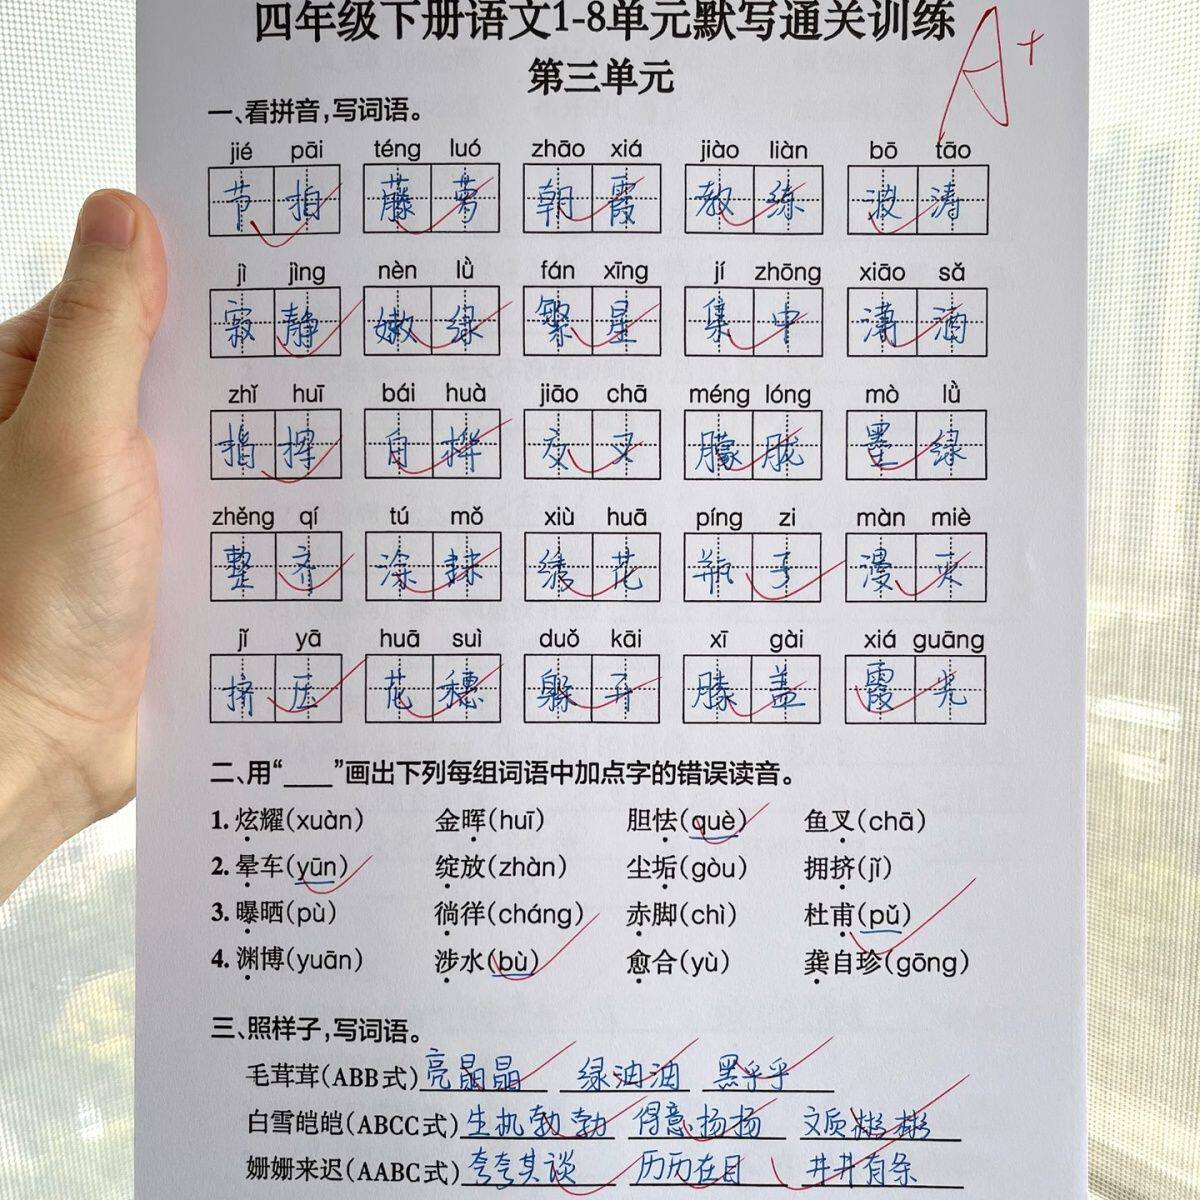 四年级下册语文1-8单元默写通关训练
A+
第三单元
一、看拼音,写词语。
jié pāi téng luó zhāo xiá jiào liàn bō tāo
节拍 藤萝 朝霞 教练 波涛
jì jìng nèn lǜ fán xīng jí zhōng xiāo sǎ
寂静 嫩绿 繁星 集中 潇洒
zhǐ huī bái huà jiāo chā méng lóng mò lǜ
指挥 白桦 交叉 朦胧 墨绿
zhěng qí tú mǒ xiù huā píng zi màn miè
整齐 涂抹 绣花 瓶子
jǐ yā huā suì duǒ kāi xī gài xiá guāng
挤压 花穗 躲开 膝盖 霞光
二、用“____”画出下列每组词语中加点字的错误读音。
1. 炫耀(xuàn) 金晖(huī) 胆怯(què) 鱼叉(chā)
2. 晕车(yūn) 绽放(zhàn) 尘垢(gòu) 拥挤(jǐ)
3. 曝晒(pù) 徜徉(cháng) 赤脚(chì) 杜甫(pǔ)
4. 渊博(yuān) 涉水(bù) 愈合(yù) 龚自珍(gōng)
三、照样子,写词语。
毛茸茸(ABB式) 亮晶晶 绿油油 黑乎乎
白雪皑皑(ABCC式) 生机勃勃 得意扬扬 文质彬彬
姗姗来迟(AABC式) 夸夸其谈 历历在目 井井有条